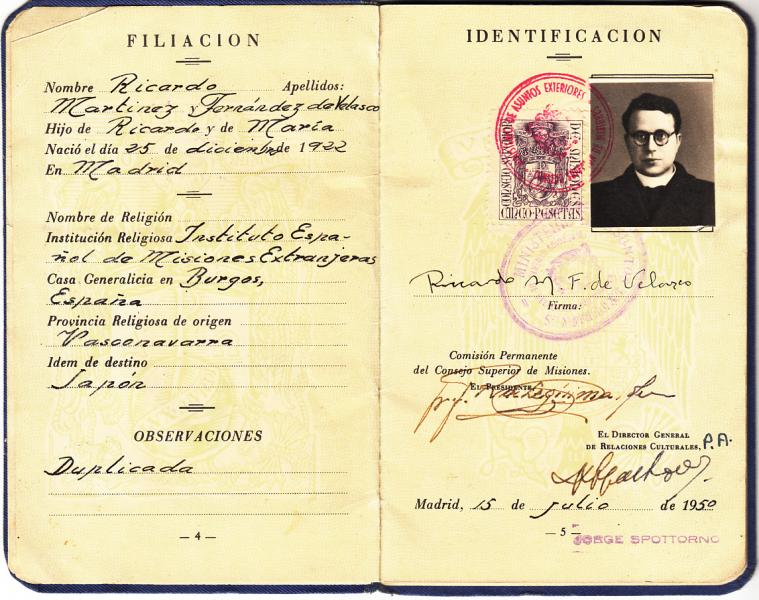 FILIACION
Nombre Ricardo Apellidos:
Martinez y Fernández de Velasco
Hijo de Ricardo y de María
Nació el día 25 de diciembre de 1922
En Madrid
Nombre de Religión
Institución Religiosa Instituto Espa-
ñol de Misiones Extranjeras
Casa Generalicia en Burgos,
España
Provincia Religiosa de origen
Vasconavarra
Idem de destino
Japón
OBSERVACIONES
Duplicada
— 4 —
IDENTIFICACION
DE ASUNTOS EXTERIORES
CONSEJO SUPERIOR DE MISIONES
CINCO·PESETAS
Ricardo M. F. de Velasco
Firma:
Comisión Permanente
del Consejo Superior de Misiones.
EL PRESIDENTE,
EL DIRECTOR GENERAL
DE RELACIONES CULTURALES, P.A.
Madrid, 15 de julio de 1950
— 5 —
JORGE SPOTTORNO